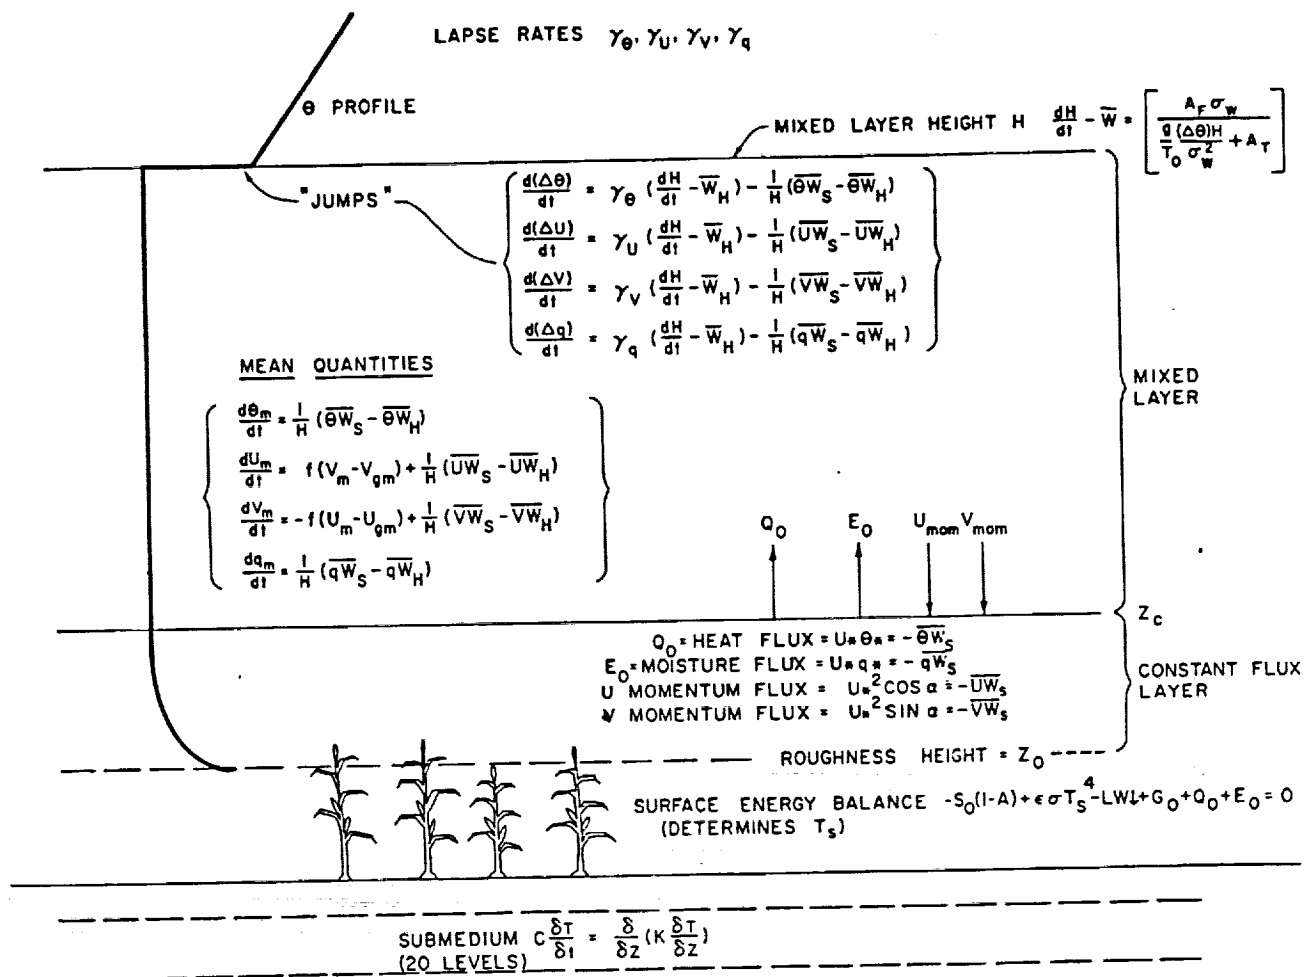 LAPSE RATES γ_θ, γ_U, γ_V, γ_q
θ PROFILE
MIXED LAYER HEIGHT H dH/dt - W̅ = [A_F σ_W / (g/T_O (Δθ)H/σ_W^2 + A_T)]
"JUMPS"
d(Δθ)/dt = γ_θ (dH/dt - W̅_H) - 1/H (θW̅_S - θW̅_H)
d(ΔU)/dt = γ_U (dH/dt - W̅_H) - 1/H (UW̅_S - UW̅_H)
d(ΔV)/dt = γ_V (dH/dt - W̅_H) - 1/H (VW̅_S - VW̅_H)
d(Δq)/dt = γ_q (dH/dt - W̅_H) - 1/H (qW̅_S - qW̅_H)
MEAN QUANTITIES
dθ_m/dt = 1/H (θW̅_S - θW̅_H)
dU_m/dt = f(V_m - V_gm) + 1/H (UW̅_S - UW̅_H)
dV_m/dt = -f(U_m - U_gm) + 1/H (VW̅_S - VW̅_H)
dq_m/dt = 1/H (qW̅_S - qW̅_H)
MIXED
LAYER
Q_O E_O U_mom V_mom
Z_c
Q_O = HEAT FLUX = U* θ* = -θW̅_S
E_O = MOISTURE FLUX = U* q* = -qW̅_S
U MOMENTUM FLUX = U*^2 COS α = -UW̅_S
V MOMENTUM FLUX = U*^2 SIN α = -VW̅_S
CONSTANT FLUX
LAYER
ROUGHNESS HEIGHT = Z_O
SURFACE ENERGY BALANCE -S_O(1-A) + ϵσT_S^4 - LW↓ + G_O + Q_O + E_O = 0
(DETERMINES T_s)
SUBMEDIUM C δT/δt = δ/δZ (K δT/δZ)
(20 LEVELS)